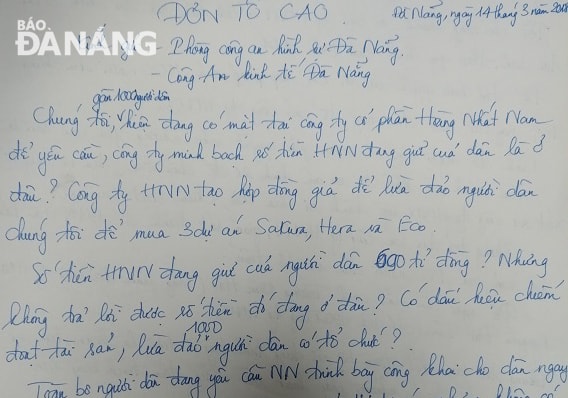 BÁO
ĐÀ NẴNG
ĐƠN TỐ CÁO
Đà Nẵng, ngày 14 tháng 3 năm 2018
- Phòng công an hình sự Đà Nẵng.
- Công An kinh tế Đà Nẵng
gần 1000 người dân
Chúng tôi, hiện đang có mặt tại công ty cổ phần Hoàng Nhất Nam
để yêu cầu, công ty minh bạch số tiền HNN đang giữ của dân là ở
đâu? Công ty HNN tạo hợp đồng giả để lừa đảo người dân
chúng tôi để mua 3 dự án Sakura, Hera và Eco.
Số tiền HNN đang giữ của người dân 690 tỉ đồng? Nhưng
không trả lời được số tiền đó đang ở đâu? Có dấu hiệu chiếm
1000
đoạt tài sản, lừa đảo người dân có tổ chức?
Toàn bộ người dân đang yêu cầu NN trình bày công khai cho dân ngay